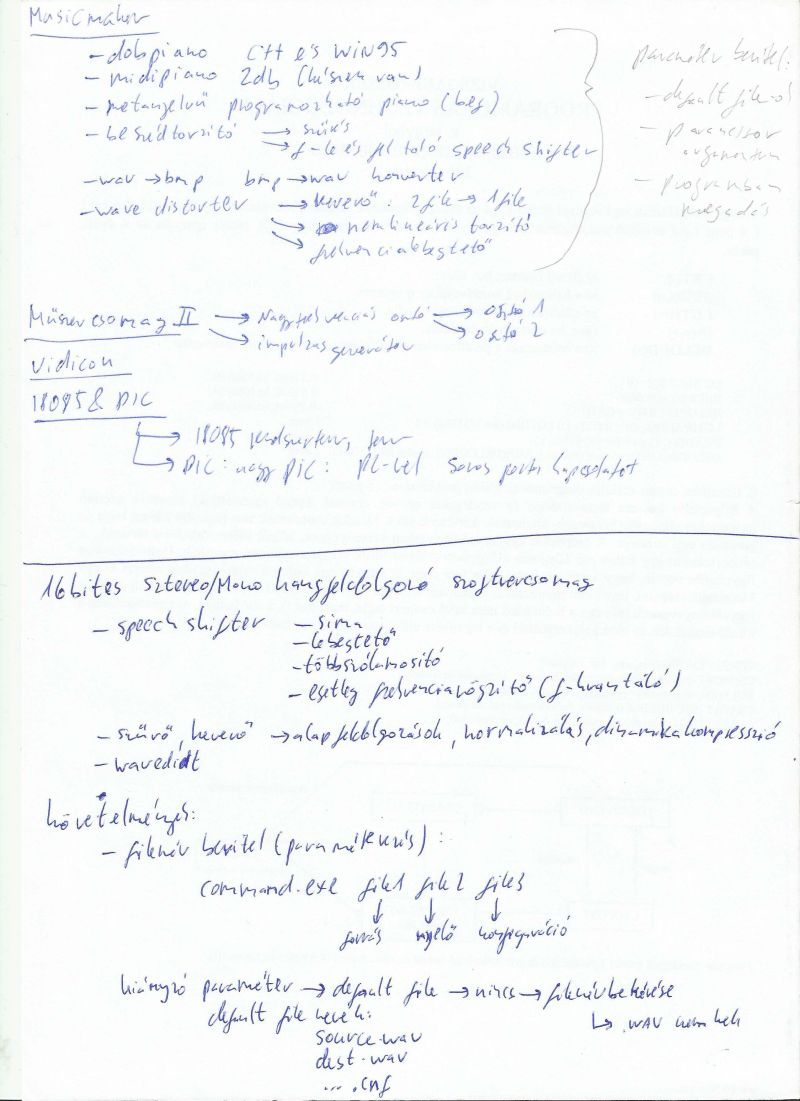 Musicmaker
- dobpiano C++ és WIN95
- midipiano 2db (készen van)
- metanyelvű programozható piano (bef)
- beszédtorzító → szűrés
→ f-le és fel toló speech shifter
- wav → bmp bmp → wav konverter
- wave distorter → keverő: 2 file → 1 file
→ nemlineáris torzító
→ frekvencialebegtető
paraméter bevitel:
- default file-ol
- parancssor argumentum
- programban megadás
Műszercsomag II → Nagyfrekvenciás osztó → osztó 1
→ osztó 2
→ impulzus generátor
Vidicon
18085 & PIC
→ 18085 rendszerterv, terv
→ PIC: nagy PIC: PC-vel soros porti kapcsolatot
16 bites sztereo/Mono hangfeldolgozó szoftvercsomag
- speech shifter - sima
- lebegtető
- többszólamosító
- esetleg frekvenciarögzítő (f-kvantáló)
- szűrő, keverő → alapfeldolgozások, normalizálás, dinamikakompresszió
- wavedit
követelmények:
- filenév bevitel (paraméterezés):
command.exe file1 file2 file3
↓ ↓ ↓
forrás nyelő konfiguráció
hiányzó paraméter → default file → nincs → filenév bekérése
↳ .WAV nem kell
default file nevek:
source.wav
dest.wav
... .cnf